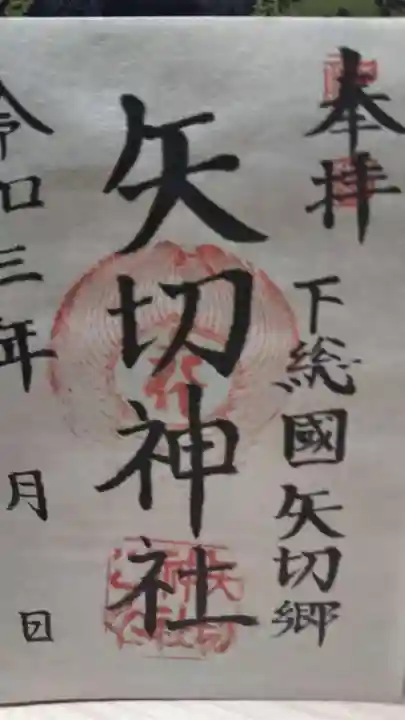 奉拝
下総國矢切郷
矢切神社
令和三年 月 日